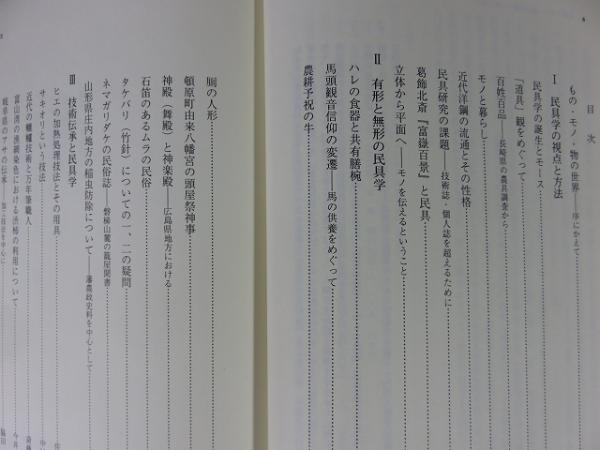 目次
もの・モノ・物の世界――序にかえて
Ⅰ 民具学の視点と方法
民具学の誕生とモース
「道具」観をめぐって
百姓百品――長崎県の農具調査から
モノと暮らし
近代洋鋼の流通とその性格
民具研究の課題――技術誌・個人誌を超えるために
葛飾北斎『富嶽百景』と民具
立体から平面へ――モノを伝えるということ
Ⅱ 有形と無形の民具学
ハレの食器と共有膳椀
馬頭観音信仰の変遷――馬の供養をめぐって
農耕予祝の牛
胴の人形
頓原町由来八幡宮の頭屋祭神事
神殿（舞殿）と神楽殿――広島県地方における
石笛のあるムラの民俗
タケバリ（竹針）についての一、二の疑問
ネマガリダケの民俗誌――磐梯山麓の籠屋聞書
山形県庄内地方の稲虫防除について――藩農政史料を中心として
Ⅲ 技術伝承と民具学
ヒエの加熱処理技法とその用具
サキオリという技法
近代の蠟纈技術と万年筆職人
富山湾の漁網染色における渋柿の利用について
岐阜県のアサの伝承